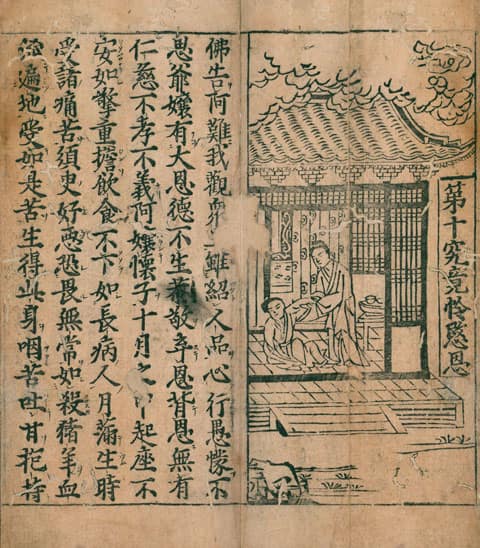 第十究竟怜愍恩
佛告阿難我觀衆雖紹人品心行愚懞不
思爺孃有大恩德不生恭敬弃恩背恩無有
仁慈不孝不義阿孃懷子十月之中起座不
安如擎重擔飲食不下如長病人月滿生時
受諸痛苦須臾好惡恐畏無常如殺猪羊血
流遍地受如是苦生得此身咽苦吐甘抱持